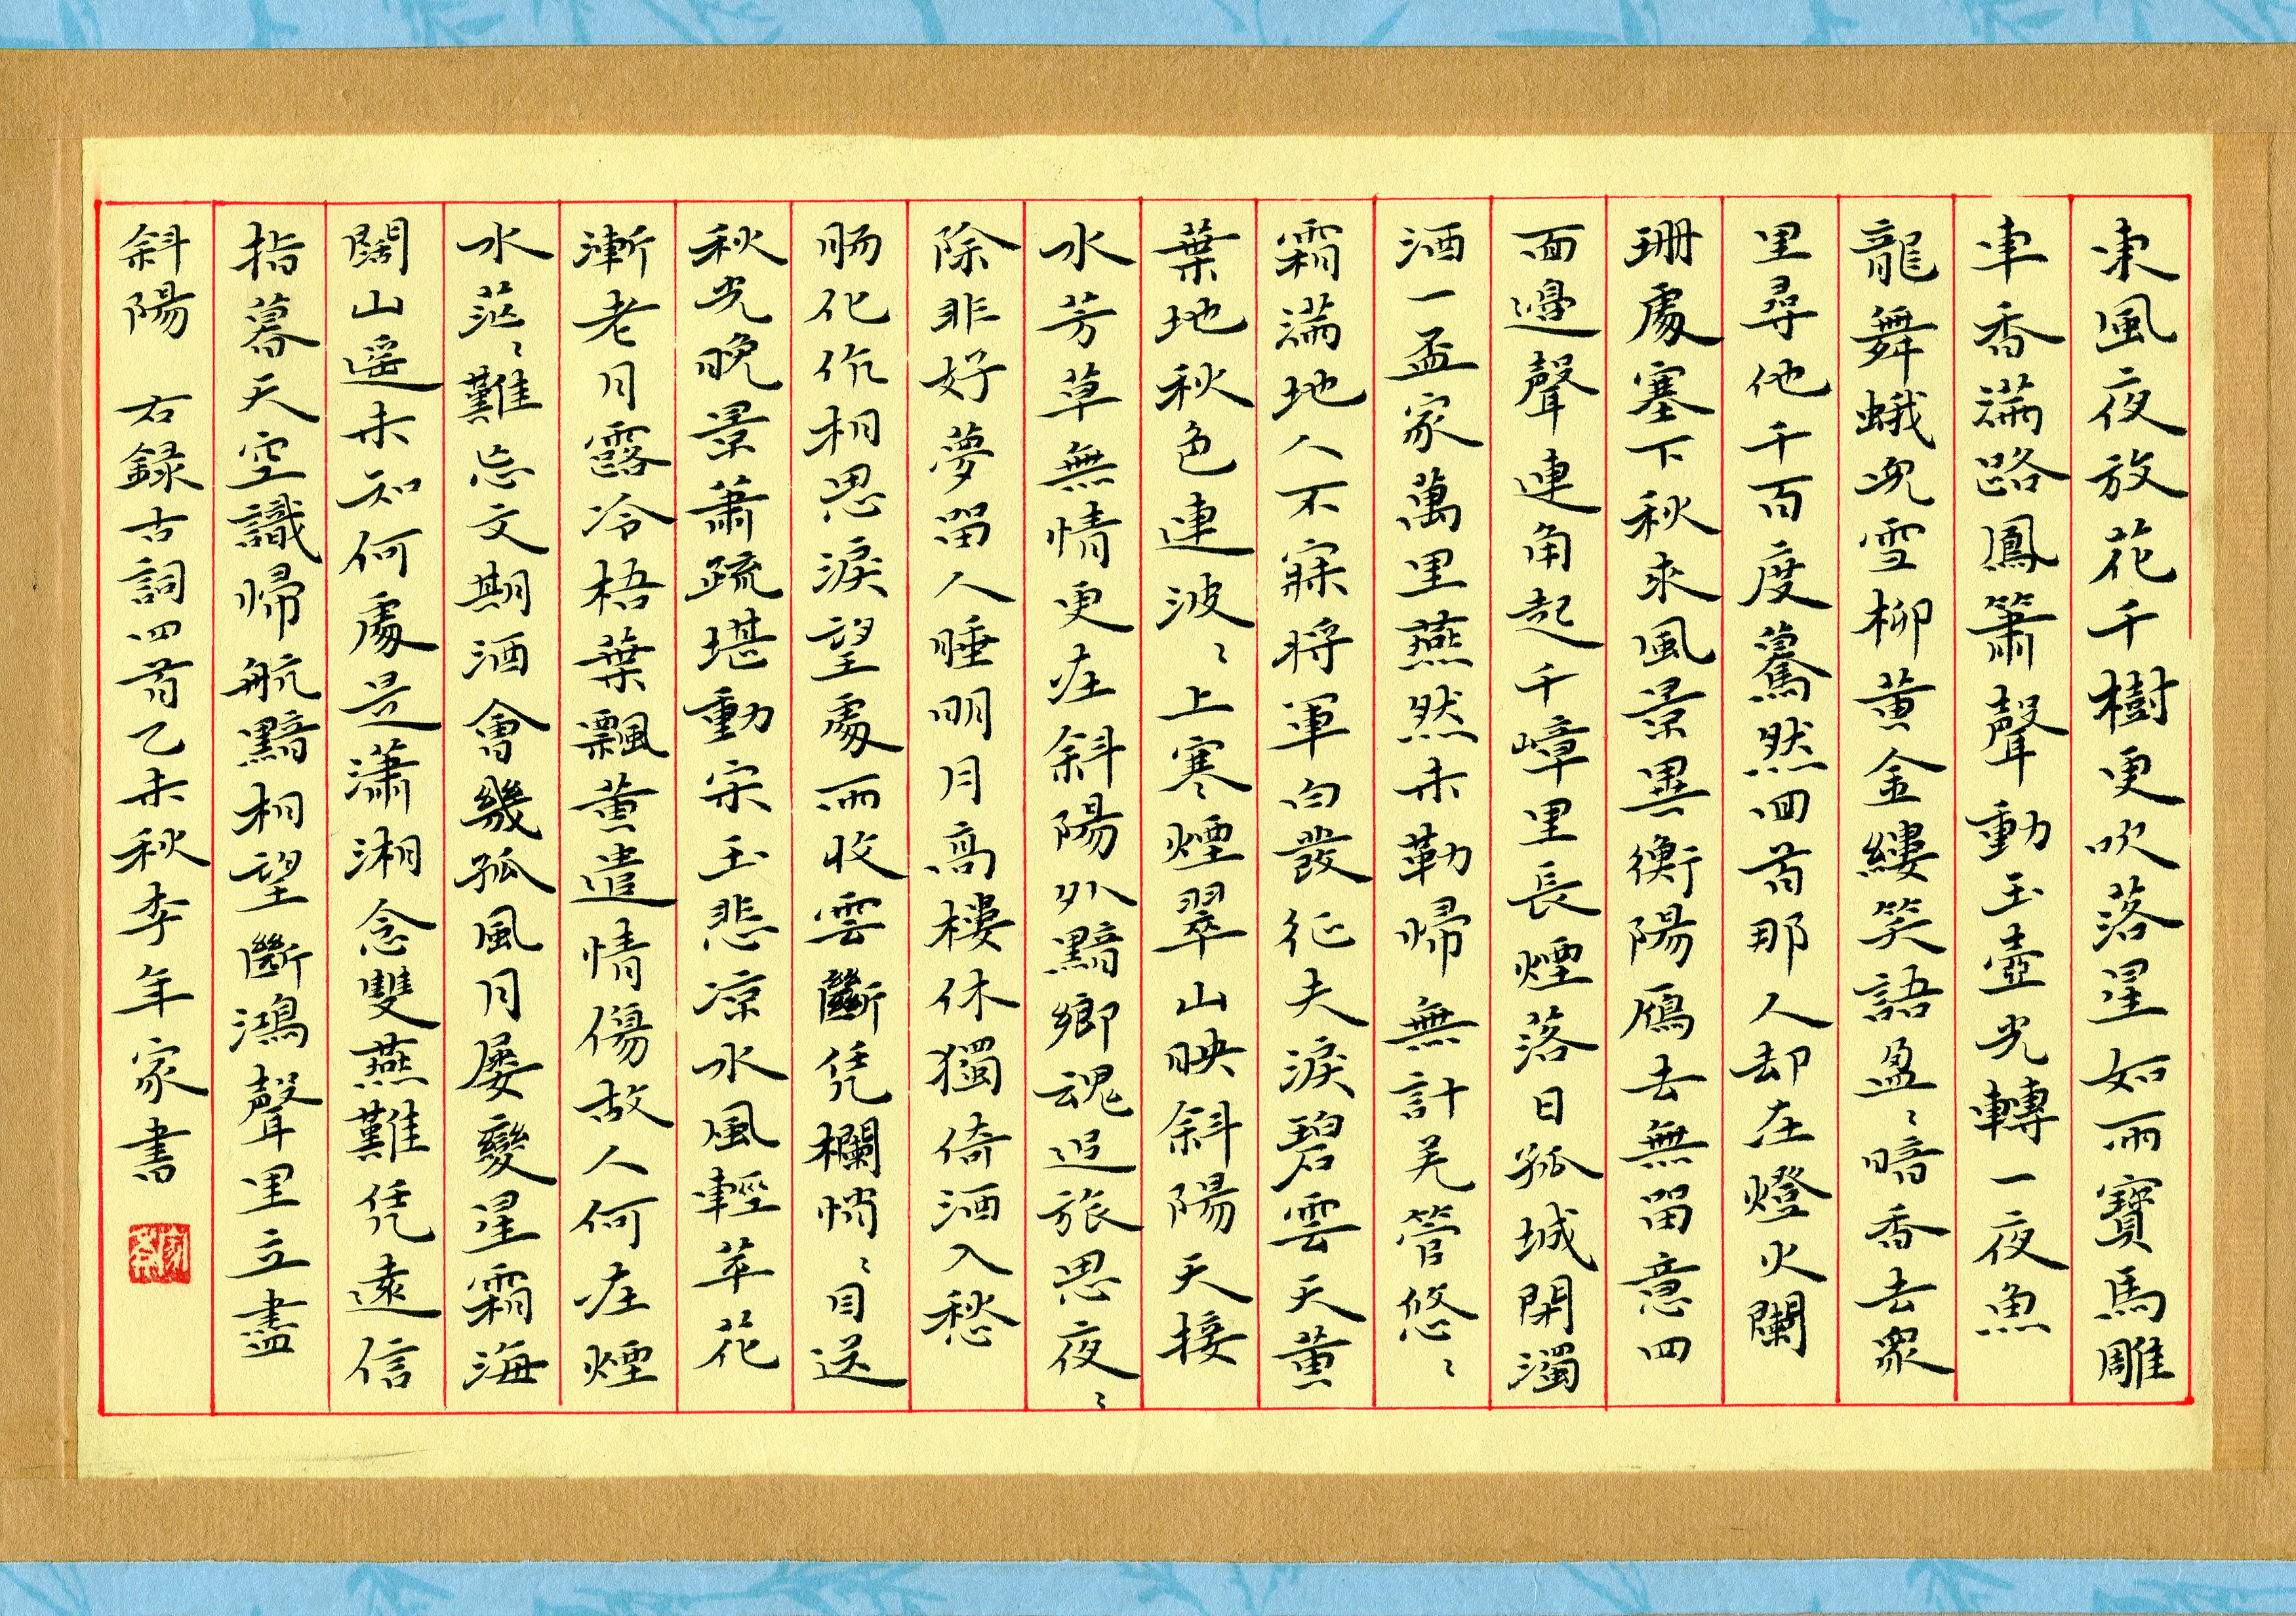 東風夜放花千樹更吹落星如雨寶馬雕
車香滿路鳳簫聲動玉壺光轉一夜魚
龍舞蛾兒雪柳黃金縷笑語盈〻暗香去衆
里尋他千百度驀然回首那人却在燈火闌
珊處塞下秋來風景異衡陽雁去無留意四
面邊聲連角起千嶂里長煙落日孤城閉濁
酒一盃家萬里燕然未勒歸無計羌管悠〻
霜滿地人不寐將軍白發征夫淚碧雲天黃
葉地秋色連波〻上寒煙翠山映斜陽天接
水芳草無情更在斜陽外黯鄉魂追旅思夜〻
除非好夢留人睡明月高樓休獨倚酒入愁
腸化作相思淚望處雨收雲斷凭欄悄〻目送
秋光晚景蕭疏堪動宋玉悲凉水風輕苹花
漸老月露冷梧葉飄黃遣情傷故人何在煙
水茫〻難忘文期酒會幾孤風月屢變星霜海
闊山遥未知何處是瀟湘念雙燕難凭遠信
指暮天空識歸航黯相望斷鴻聲里立盡
斜陽 右録古詞四首乙未秋李年家書